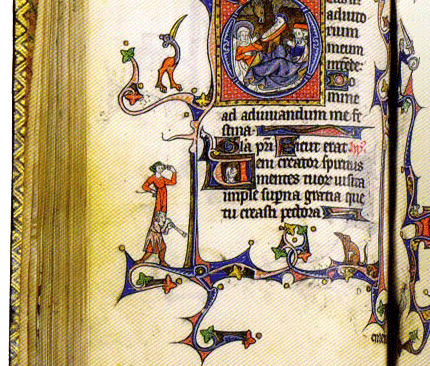 adiuto
rium
meum
intende:
Do
mine
ad adiuuandum me fe
stina.
Glia pri. Sicut erat
Ueni creator spiritus
mentes tuor uisita
imple superna gratia que
tu creasti pectora